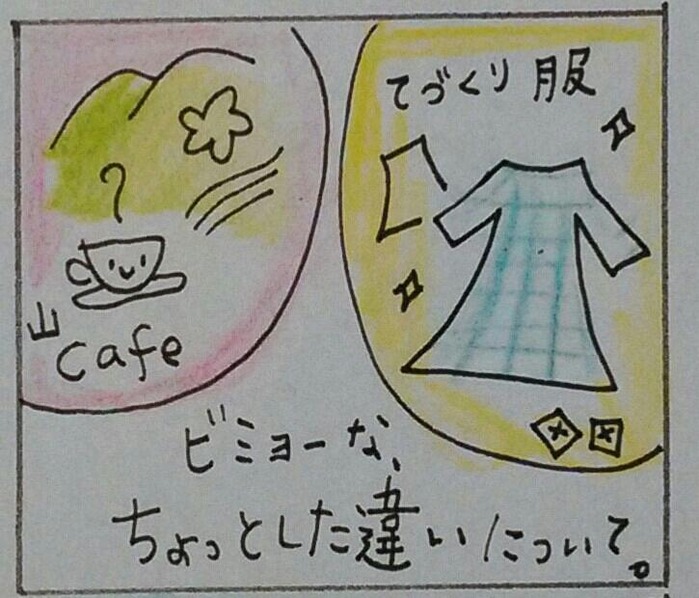 山
cafe
てづくり 服
ビミョーな、
ちょっとした違いについて。